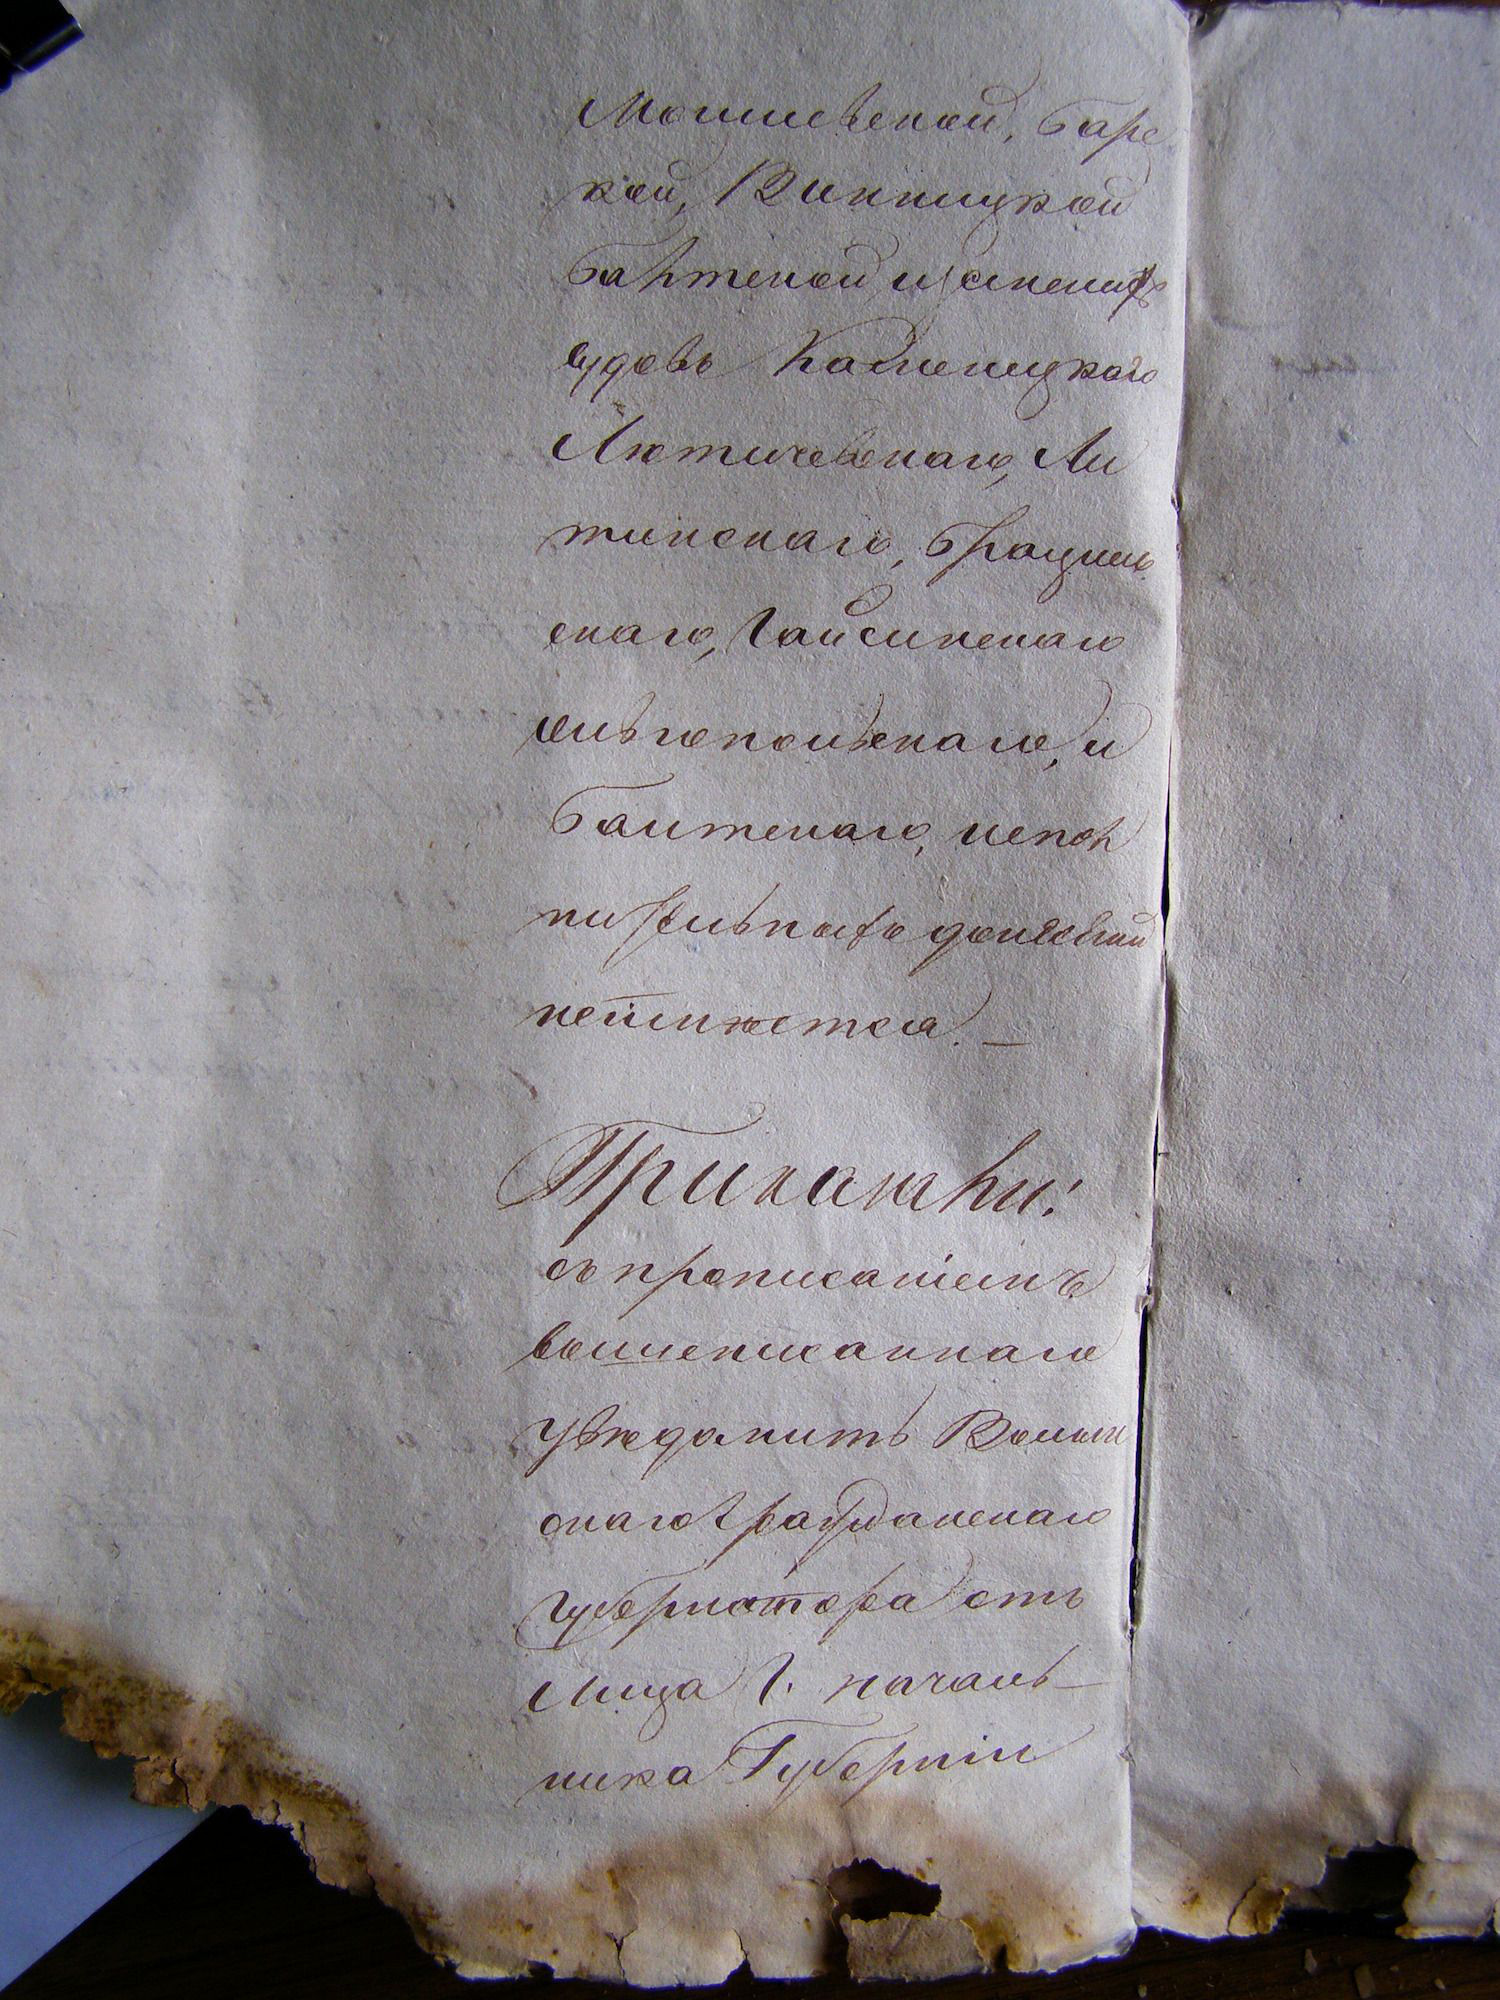 Могилевской, Барс
кой, Винницкой
Балтской изъ нихъ
судовъ Каменицкого
Лѣтичевскаго, Ли
тинскаго, Брацлав
скаго, Гайсинскаго
Ольгопольскаго, и
Балтскаго, непол
донесений
неимѣется. —
Приказали:
съ прописаніемъ
вышеписаннаго
увѣдомить Волын
скаго Гражданскаго
Губернатора отъ
лица Г. началь—
ника Губерніи